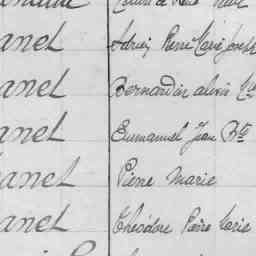 anet Adrien Pierre Marie Joseph
anet Bernardin alivis
anet Emmanuel Jean Bte
anet Pierre Marie
anet Théodore Pierre Marie